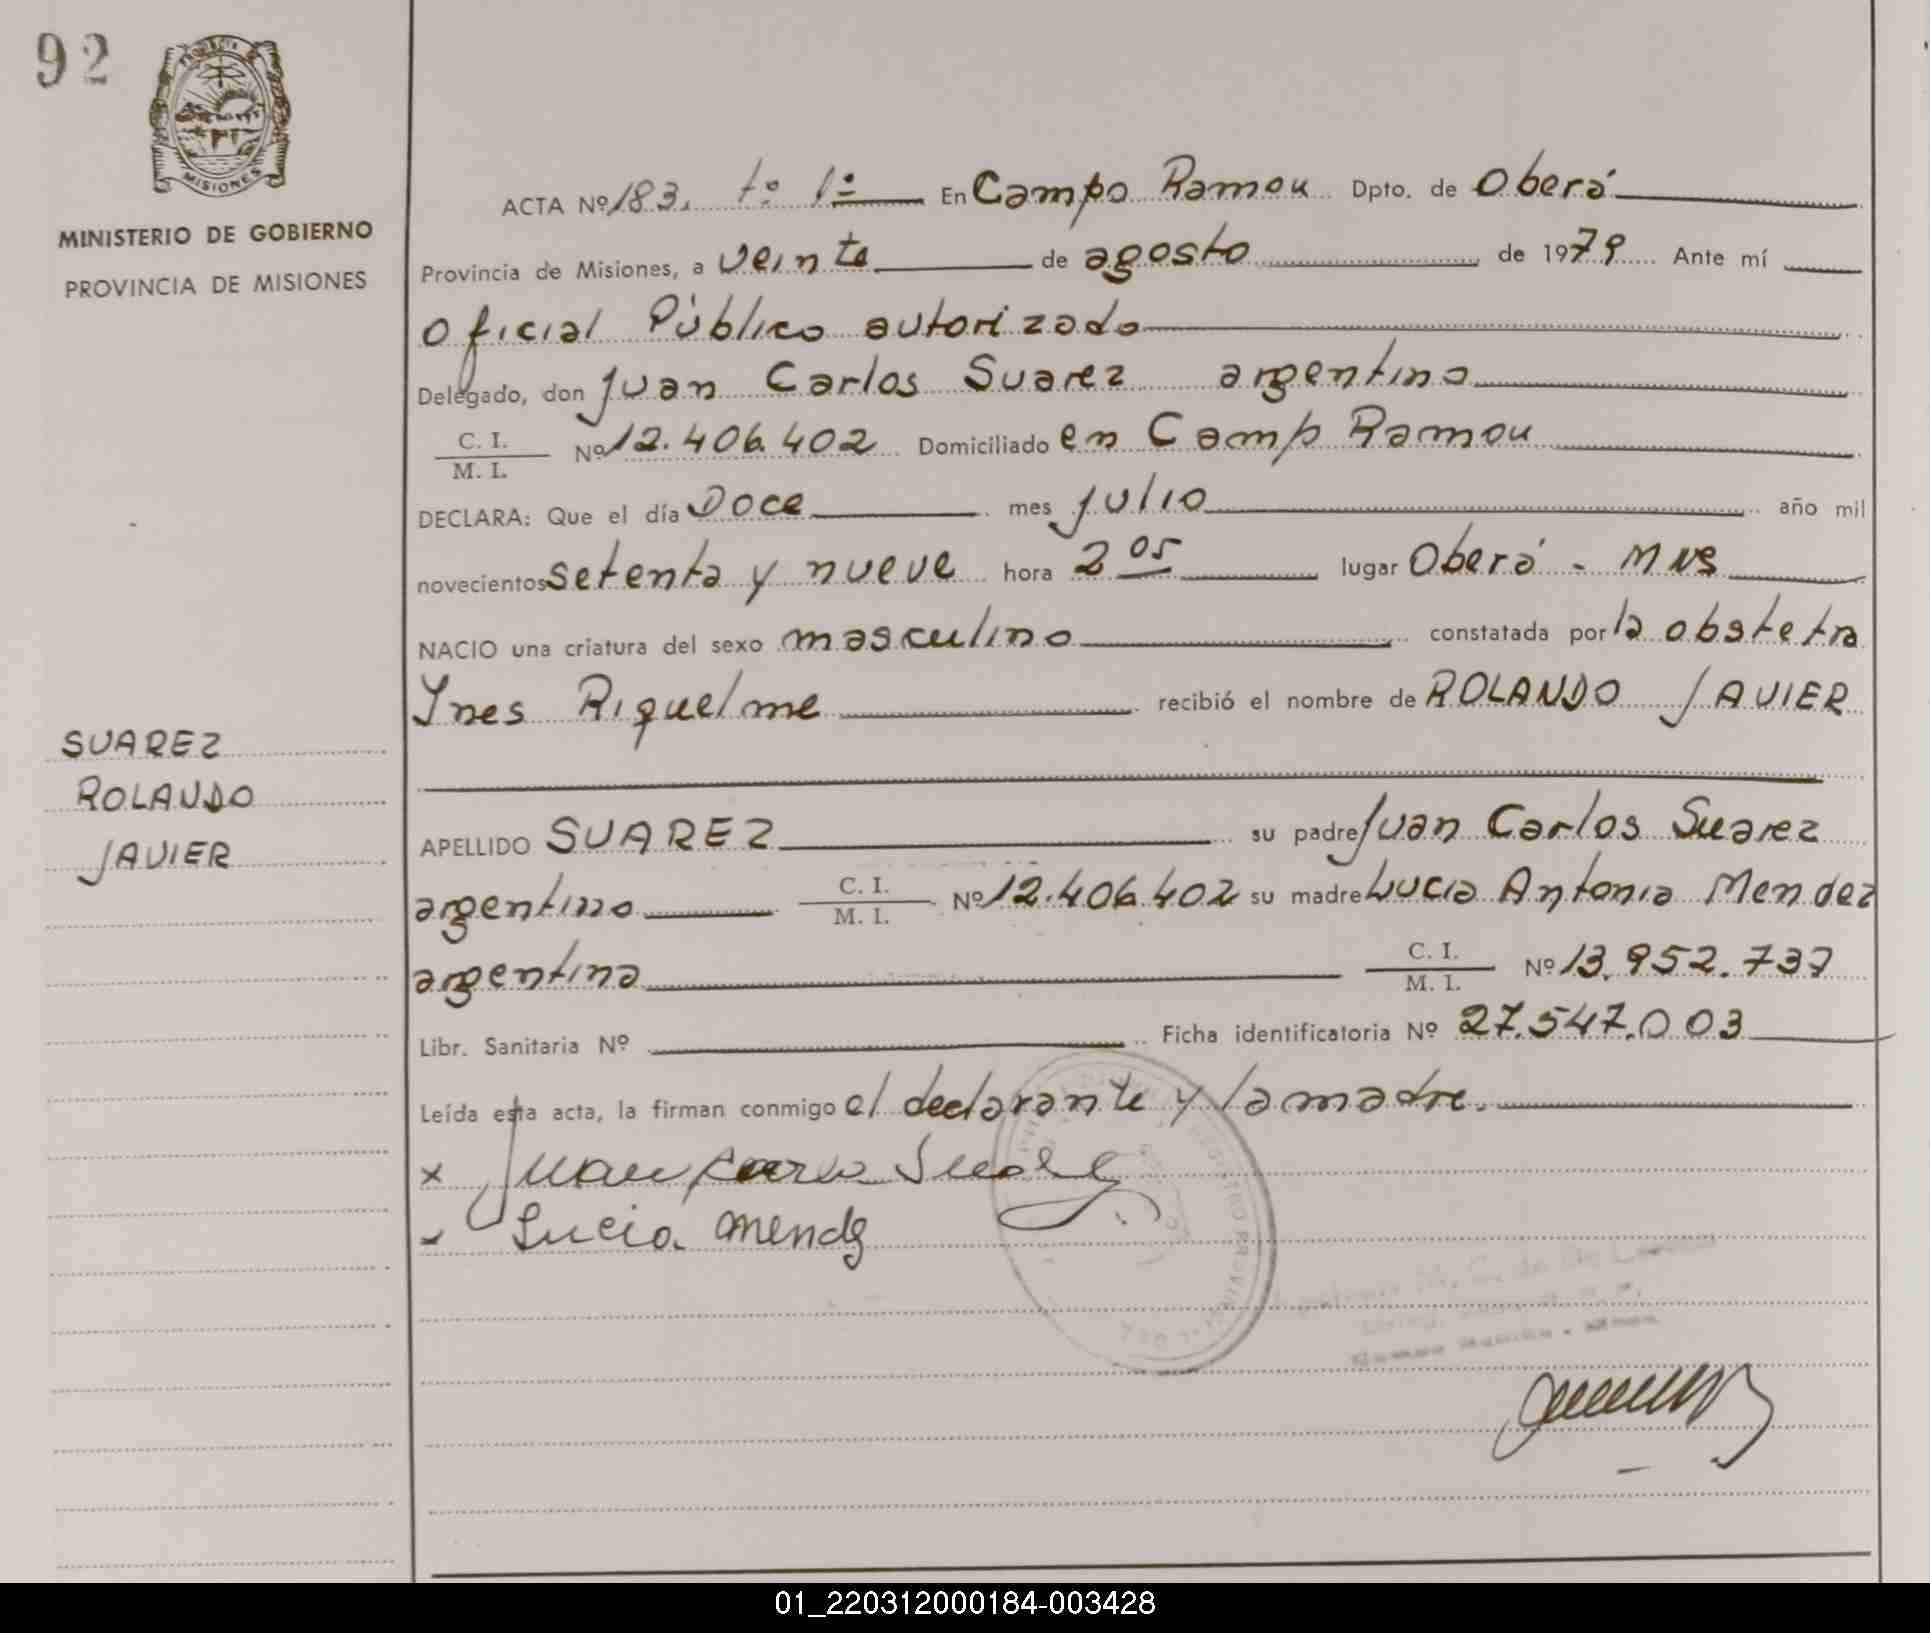 92
MISIONES
MINISTERIO DE GOBIERNO
PROVINCIA DE MISIONES
ACTA Nº 183. tº 1º En Campo Ramon Dpto. de Oberá
Provincia de Misiones, a veinte de agosto de 1979 Ante mí
Oficial Público autorizado
Delegado, don Juan Carlos Suarez argentino
C. I.
M. I.
Nº 12.406.402 Domiciliado en Camp Ramon
DECLARA: Que el día Doce mes Julio año mil
novecientos setenta y nueve hora 2 05 lugar Oberá - Mns
NACIO una criatura del sexo masculino constatada por la obstetra
Ynes Riquelme recibió el nombre de ROLANDO JAVIER
SUAREZ
ROLANDO
JAVIER
APELLIDO SUAREZ su padre Juan Carlos Suarez
argentino C. I. M. I. Nº 12.406.402 su madre Lucia Antonia Mendez
argentina C. I. M. I. Nº 13.952.737
Libr. Sanitaria Nº Ficha identificatoria Nº 27.547.003
Leída esta acta, la firman conmigo el declarante y la madre.
x Juan Carlos Suarez
Lucia Mendz
01_220312000184-003428